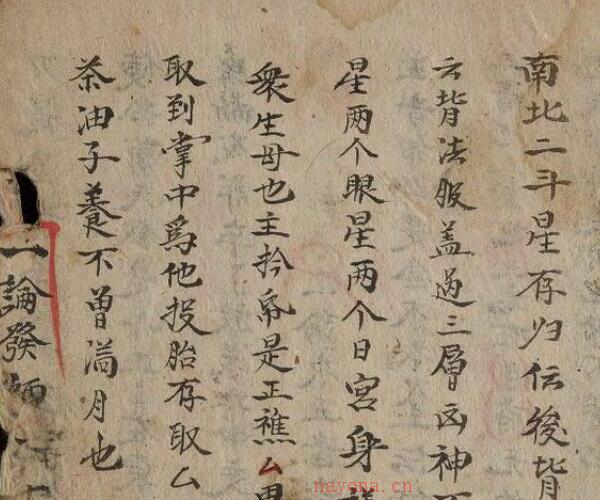 南北二斗星存归伝後背
云背法服盖过三層凶神
星两个眼星两个日宮身
衆生母也主扵帋是正醮厶
取到掌中為他投胎存取厶
茶油子養不曾満月也
一論發師
nayona.cn